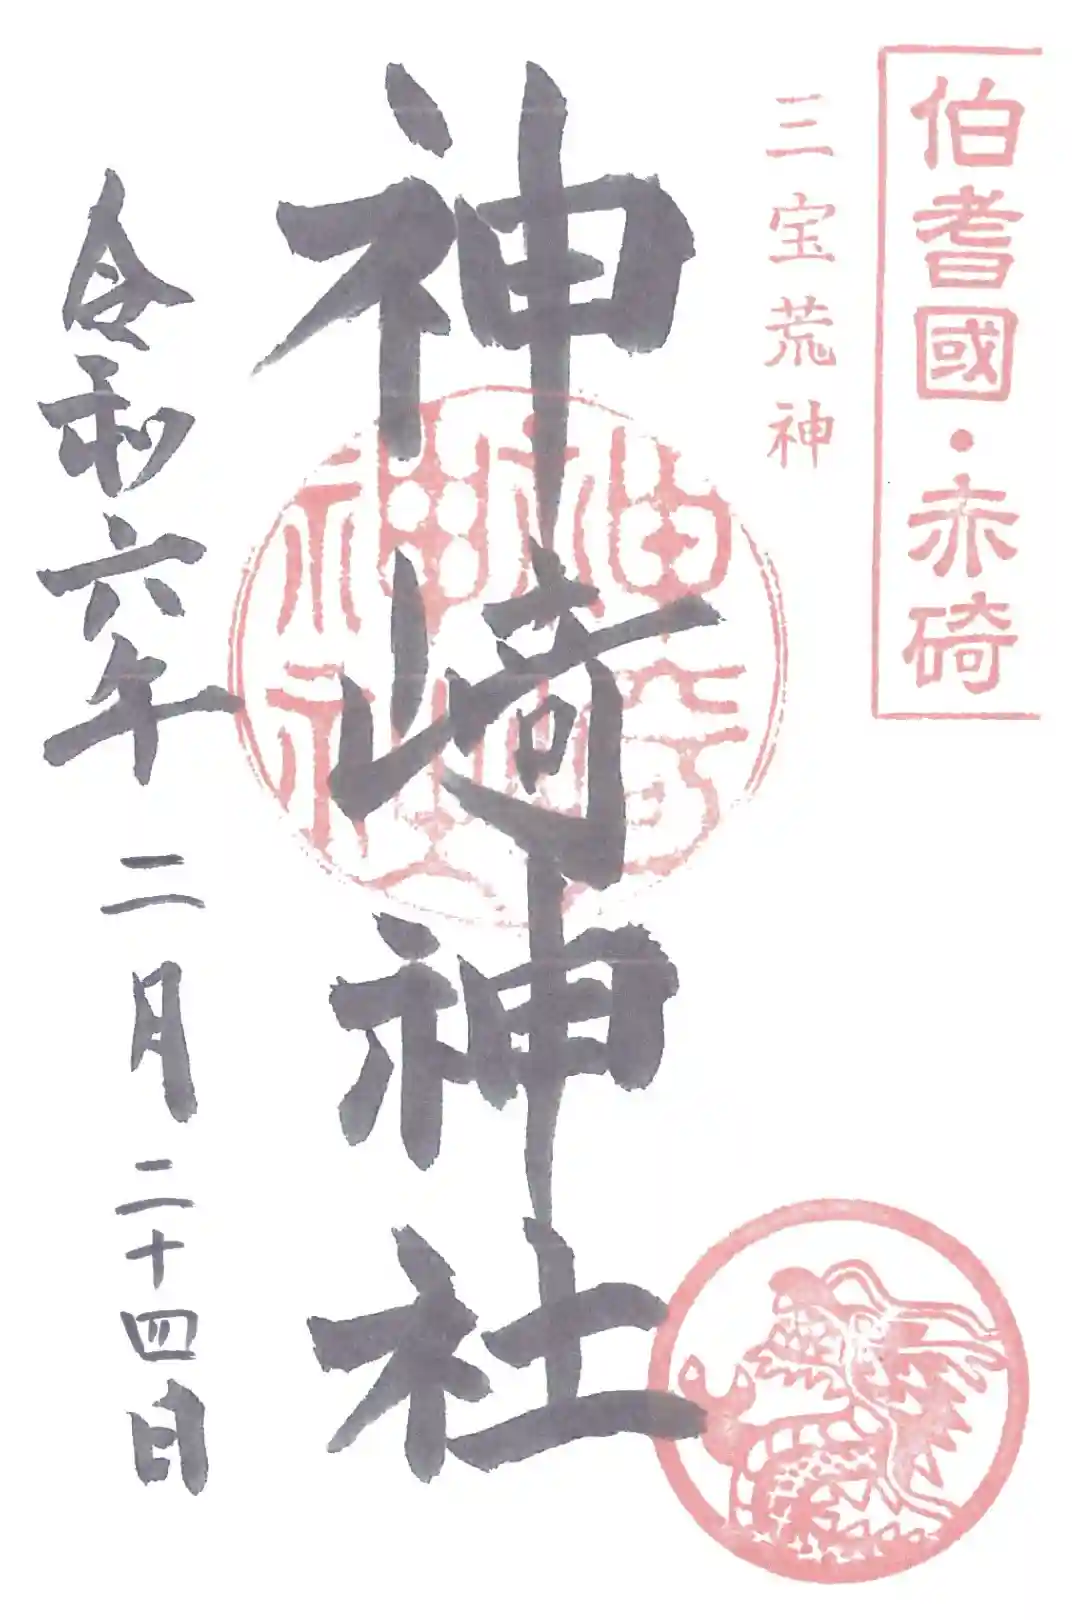 伯耆國・赤碕
三宝荒神
神崎神社
神崎神社
令和六年二月二十四日